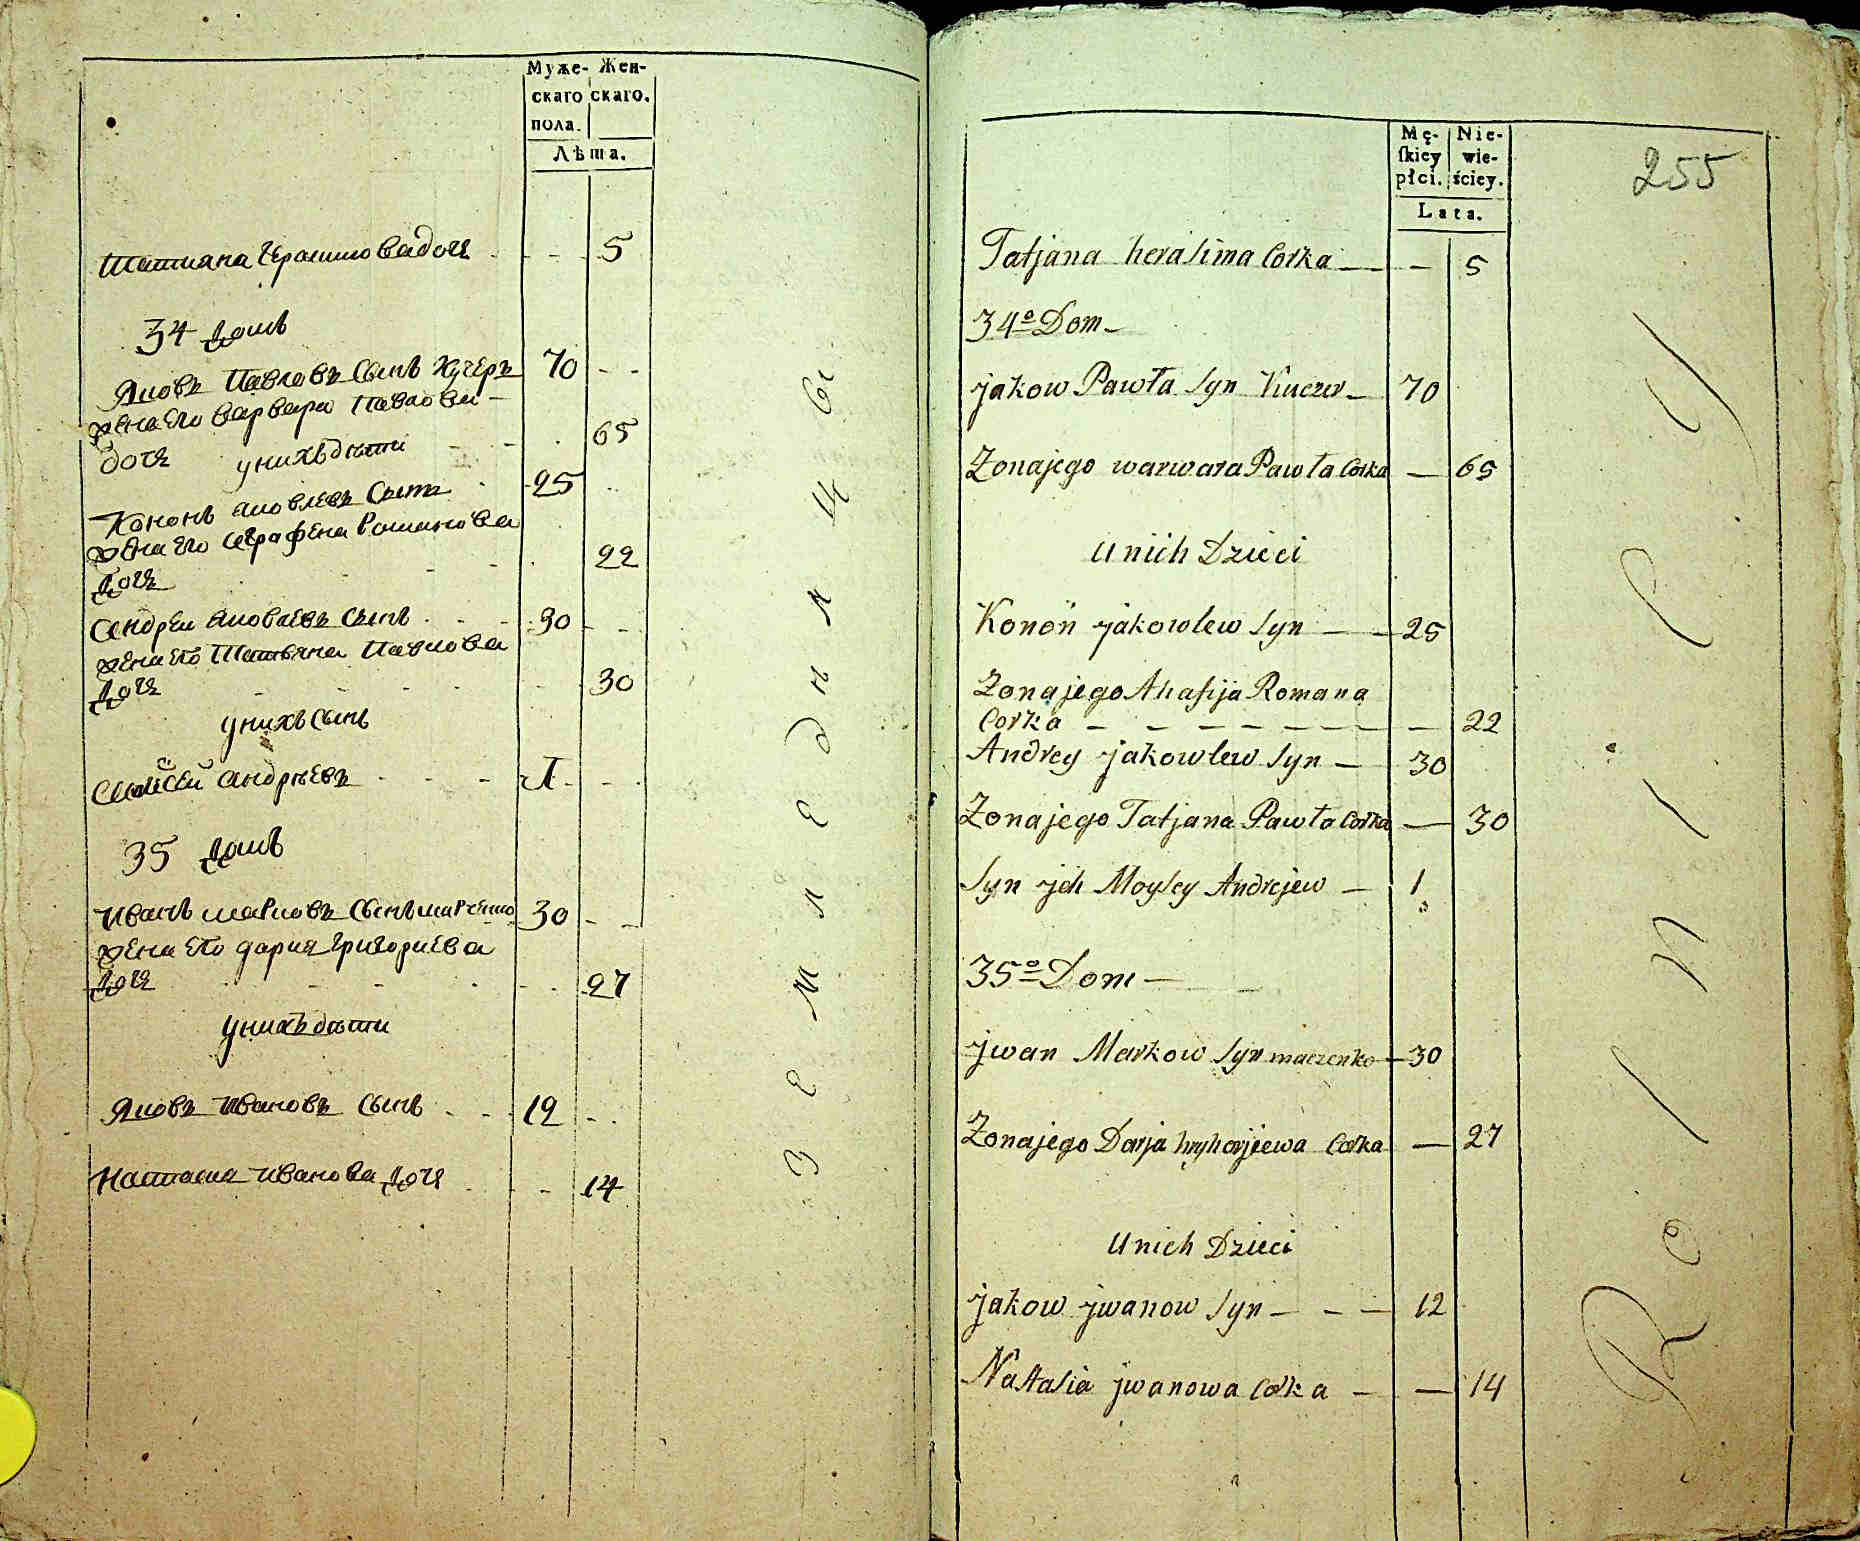 Муже- Жен-
скаго скаго.
пола.
Лѣта.
Татиана Герасимова доч - - - 5
34 домъ
Яковъ Павловъ сынъ Кучеръ 70 - -
жена его варвара Павлова -
доч - - . 65
у нихъ дѣти
Кононъ яковлевъ сынъ - 25 - -
жена его Романова
доч - - - 22
Андреи яковлевъ сынъ - - - 30 - -
жена его Татьяна Павлова
доч - - - - - 30
у нихъ сынъ
Моисей андрѣевъ - - - 1 - -
35 домъ
Иванъ марковъ сынъ марченко 30 - -
жена его дария григориева
доч - - - - - - 27
у нихъ дѣти
Яковъ ивановъ сынъ - - - 12 - -
Наталия иванова доч - - - 14
Земледѣлцы
255
Mę- Nie-
ſkiey wie-
płci. ściey.
Lata.
Tatjana herasima Corka — — 5
34º Dom -
jakow Pawła Syn Kuczer - 70
Zona jego warwara Pawła Corka — 65
U nich Dzieci
Konon jakowlew Syn — - 25
Zona jego Ahafija Romana
Corka — — — — — — — 22
Andrey jakowlew Syn — 30
Zona jego Tatjana Pawła Corka — 30
Syn jch Moysey Andrejew — 1
35º Dom —
jwan Markow Syn marczenko — 30
Zona jego Darja hryhorjewa Corka — 27
U nich Dzieci
jakow jwanow Syn — — — 12
Natalia jwanowa Corka — — 14
Rolnicy